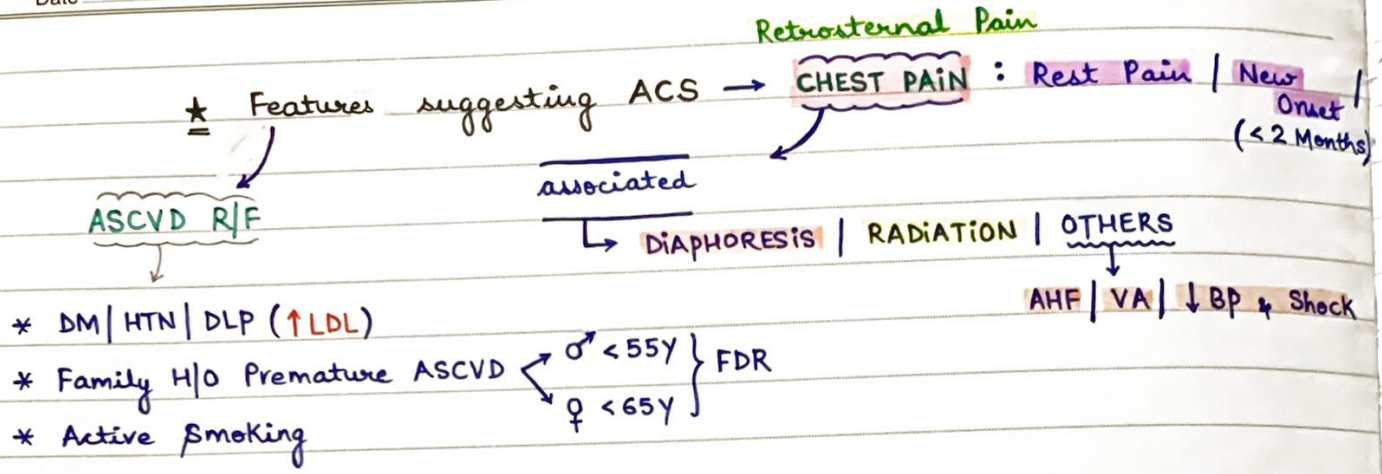 Date
Retrosternal Pain
* Features suggesting ACS → CHEST PAiN : Rest Pain | New Onset | (< 2 Months)
associated
ASCVD R/F
↳ DiAPHORESiS | RADiATiON | OTHERS
AHF | VA | ↓ BP & Shock
* DM | HTN | DLP (↑ LDL)
* Family H/O Premature ASCVD ♂ < 55Y } FDR
♀ < 65Y
* Active Smoking